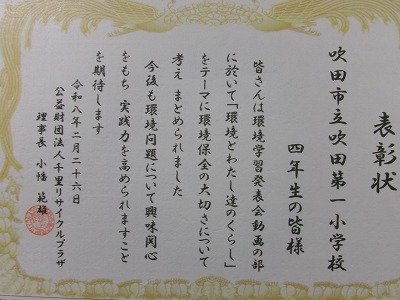 表彰状
吹田市立吹田第一小学校
四年生の皆様
皆さんは環境学習発表会動画の部
に於いて「環境とわたし達のくらし」
をテーマに環境保全の大切さについて
考え まとめられました
今後も環境問題について興味関心
をもち 実践力を高められますこと
を期待します
令和八年二月二十六日
公益財団法人千里リサイクルプラザ
理事長 小幡 範雄